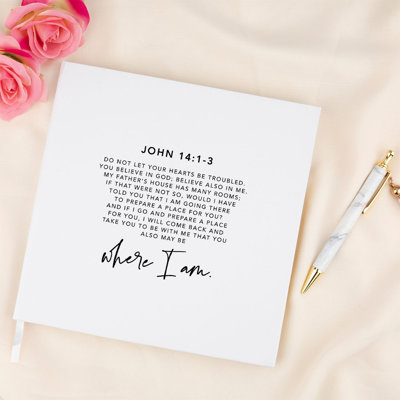 JOHN 14:1-3
DO NOT LET YOUR HEARTS BE TROUBLED.
YOU BELIEVE IN GOD; BELIEVE ALSO IN ME.
MY FATHER'S HOUSE HAS MANY ROOMS;
IF THAT WERE NOT SO, WOULD I HAVE
TOLD YOU THAT I AM GOING THERE
TO PREPARE A PLACE FOR YOU?
AND IF I GO AND PREPARE A PLACE
FOR YOU, I WILL COME BACK AND
TAKE YOU TO BE WITH ME THAT YOU
ALSO MAY BE
where I am.